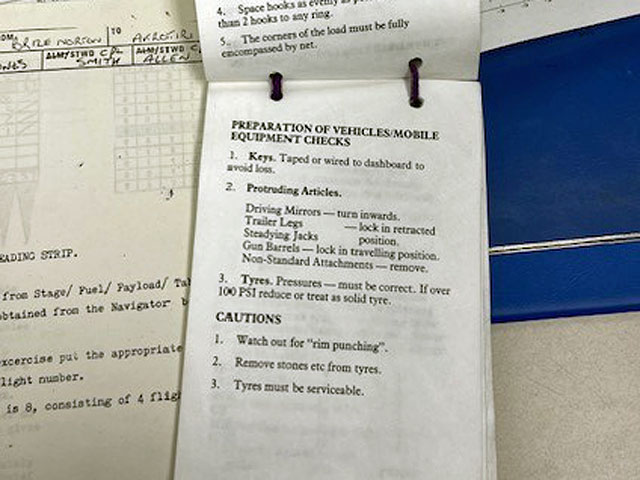 BRIZE NORTON
TO
AKROTIRI
ALM/STWD CPL
SMITH
ALM/STWD
ALLEN
4. Space hooks as evenly as
than 2 hooks to any ring.
5. The corners of the load must be fully
encompassed by net.
PREPARATION OF VEHICLES/MOBILE
EQUIPMENT CHECKS
1. Keys. Taped or wired to dashboard to
avoid loss.
2. Protruding Articles.
Driving Mirrors — turn inwards.
Trailer Legs — lock in retracted
Steadying Jacks position.
Gun Barrels — lock in travelling position.
Non-Standard Attachments — remove.
3. Tyres. Pressures — must be correct. If over
100 PSI reduce or treat as solid tyre.
CAUTIONS
1. Watch out for "rim punching".
2. Remove stones etc from tyres.
3. Tyres must be serviceable.
EADING STRIP.
from Stage/ Fuel/ Payload/ Ta
obtained from the Navigator b
excercise put the appropriate
light number.
is 8, consisting of 4 flig